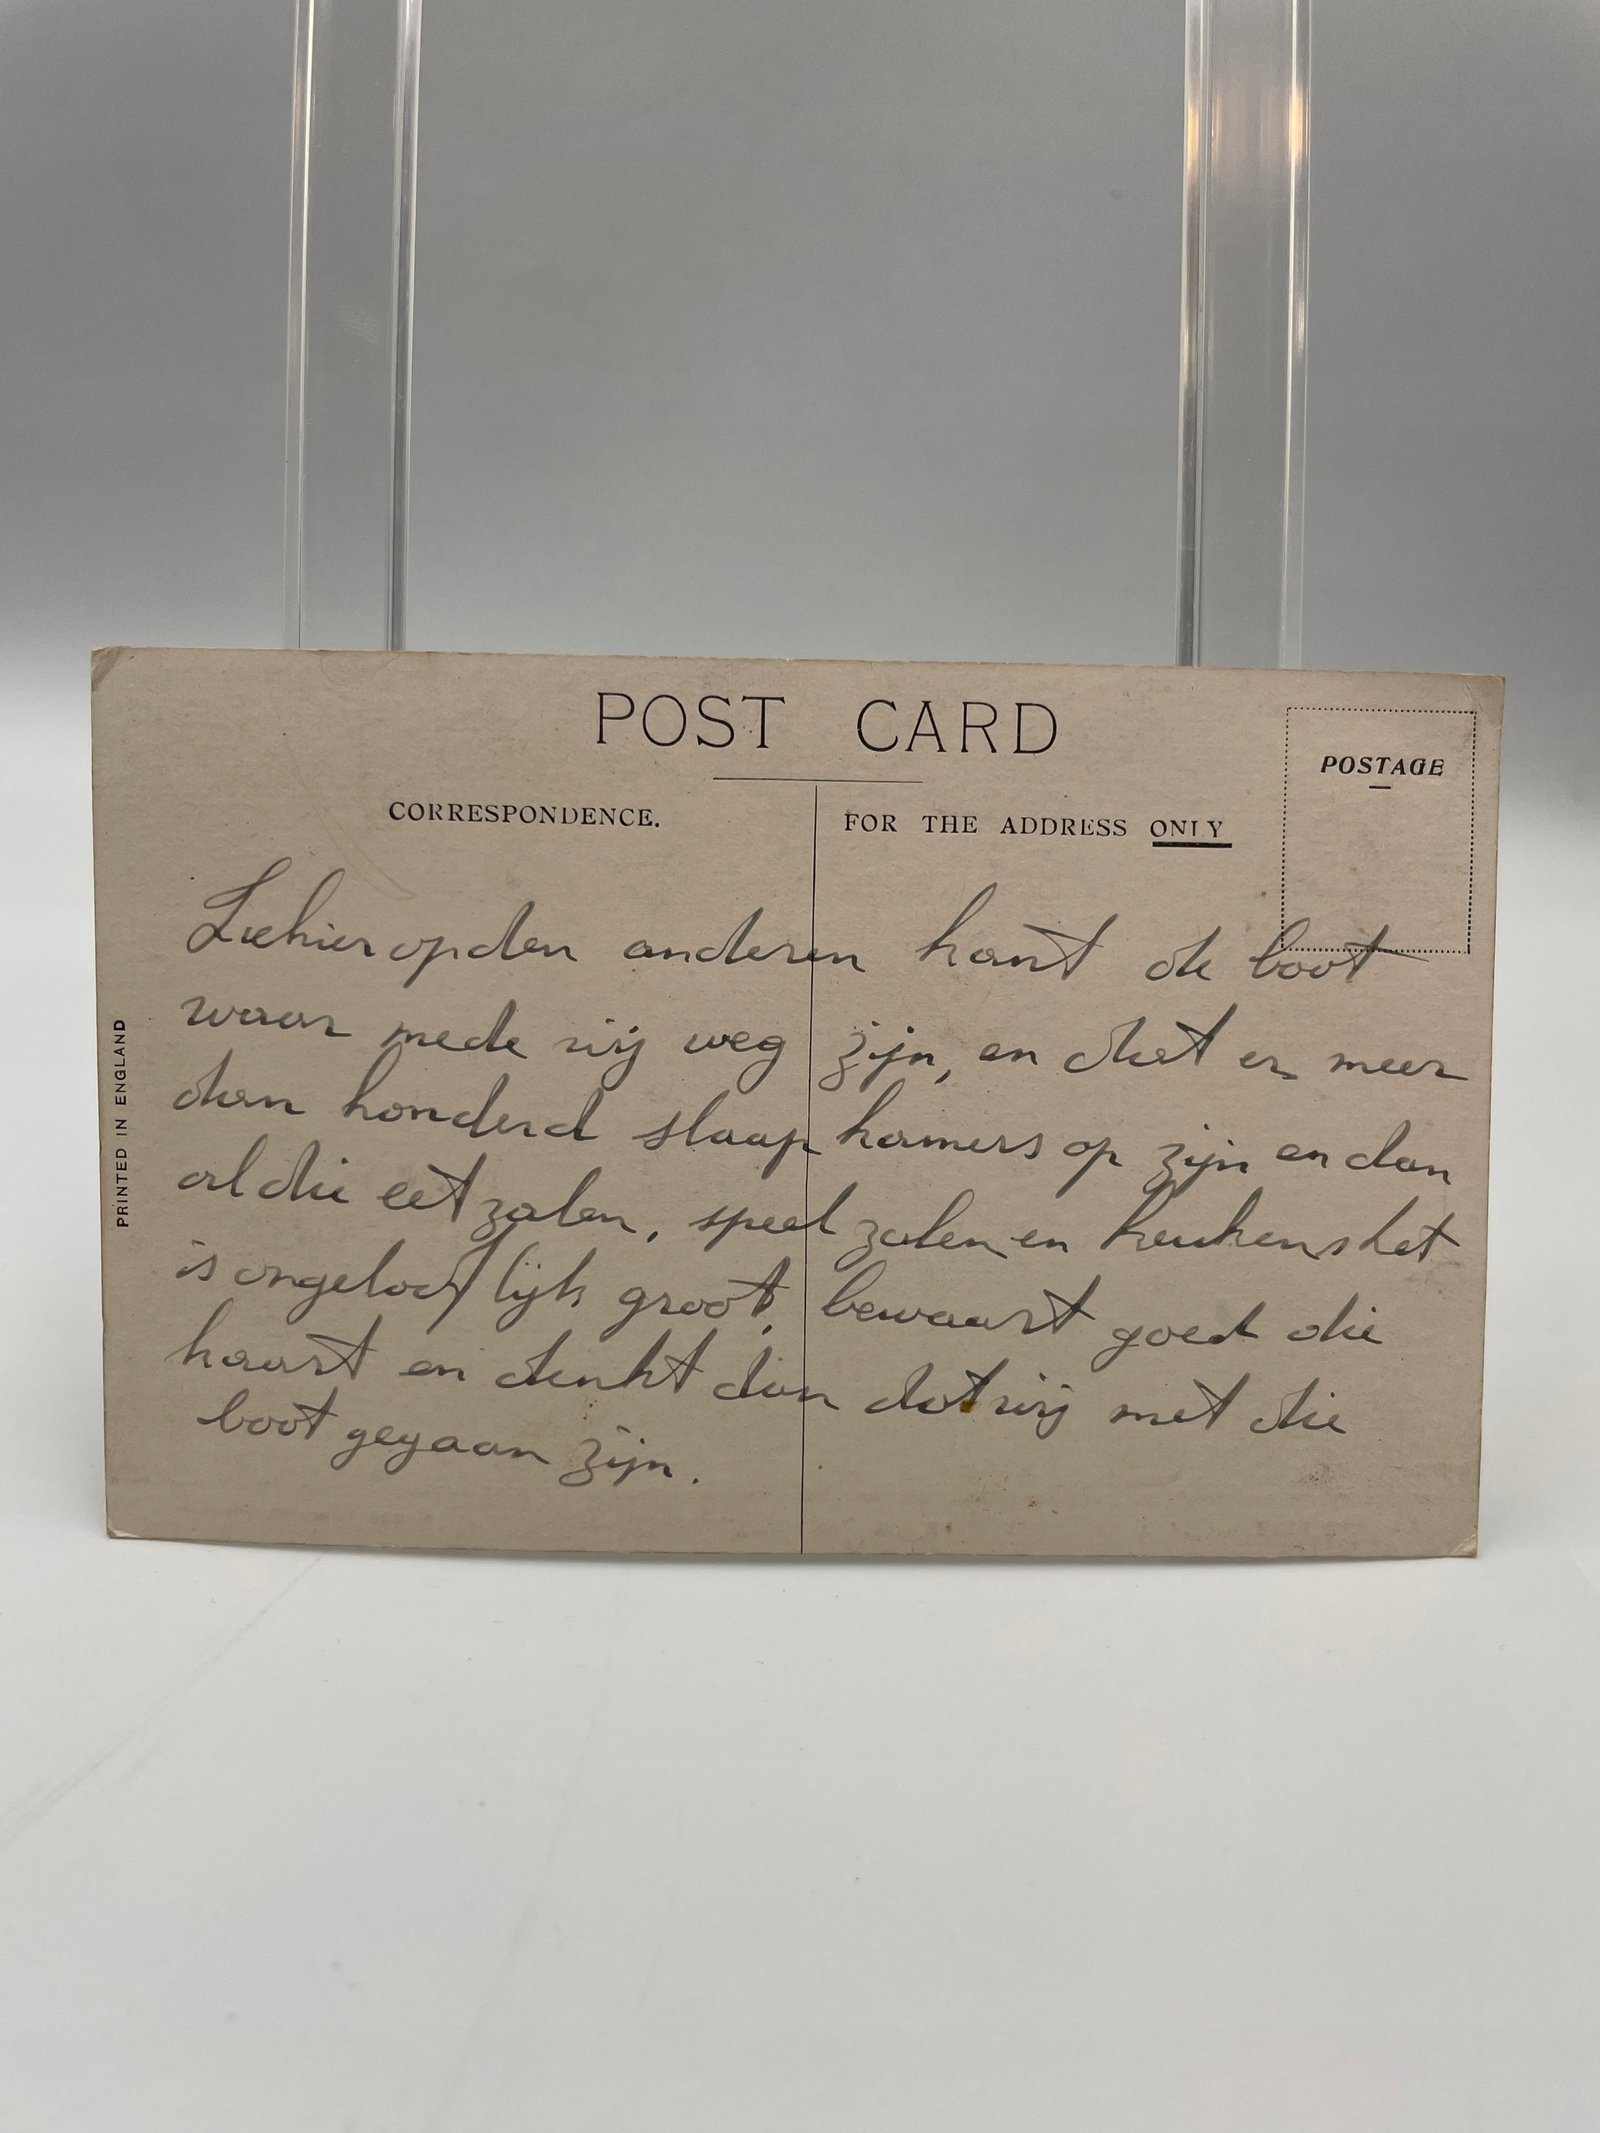 POST CARD
CORRESPONDENCE.
FOR THE ADDRESS ONLY
POSTAGE
PRINTED IN ENGLAND
Ziehier op den anderen kant de boot
waar mede wij weg zijn, en dat er meer
dan honderd slaap kamers op zijn en dan
al die eet zalen, speel zalen en keukens het
is ongeloof lijk groot, bewaart goed die
kaart en denkt dan dat wij met die
boot gegaan zijn.